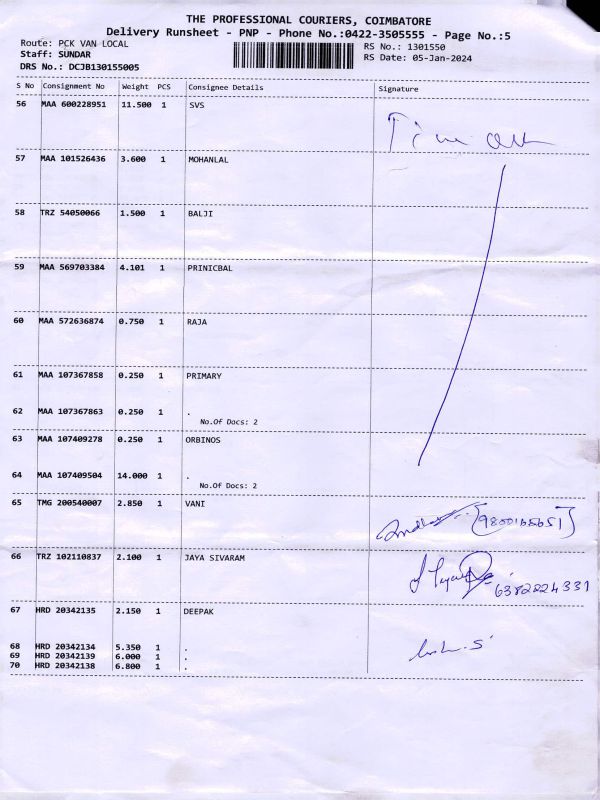 THE PROFESSIONAL COURIERS, COIMBATORE
Delivery Runsheet - PNP - Phone No.:0422-3505555 - Page No.:5
Route: PCK VAN LOCAL
RS No.: 1301550
Staff: SUNDAR
RS Date: 05-Jan-2024
DRS No.: DCJB130155005
S No Consignment No Weight PCS Consignee Details Signature
56 MAA 600228951 11.500 1 SVS
57 MAA 101526436 3.600 1 MOHANLAL
58 TRZ 54050066 1.500 1 BALJI
59 MAA 569703384 4.101 1 PRINICBAL
60 MAA 572636874 0.750 1 RAJA
61 MAA 107367858 0.250 1 PRIMARY
62 MAA 107367863 0.250 1 .
No.Of Docs: 2
63 MAA 107409278 0.250 1 ORBINOS
64 MAA 107409504 14.000 1 .
No.Of Docs: 2
65 TMG 200540007 2.850 1 VANI
66 TRZ 102110837 2.100 1 JAYA SIVARAM
6382224331
67 HRD 20342135 2.150 1 DEEPAK
68 HRD 20342134 5.350 1 .
69 HRD 20342139 6.000 1 .
70 HRD 20342138 6.800 1 .